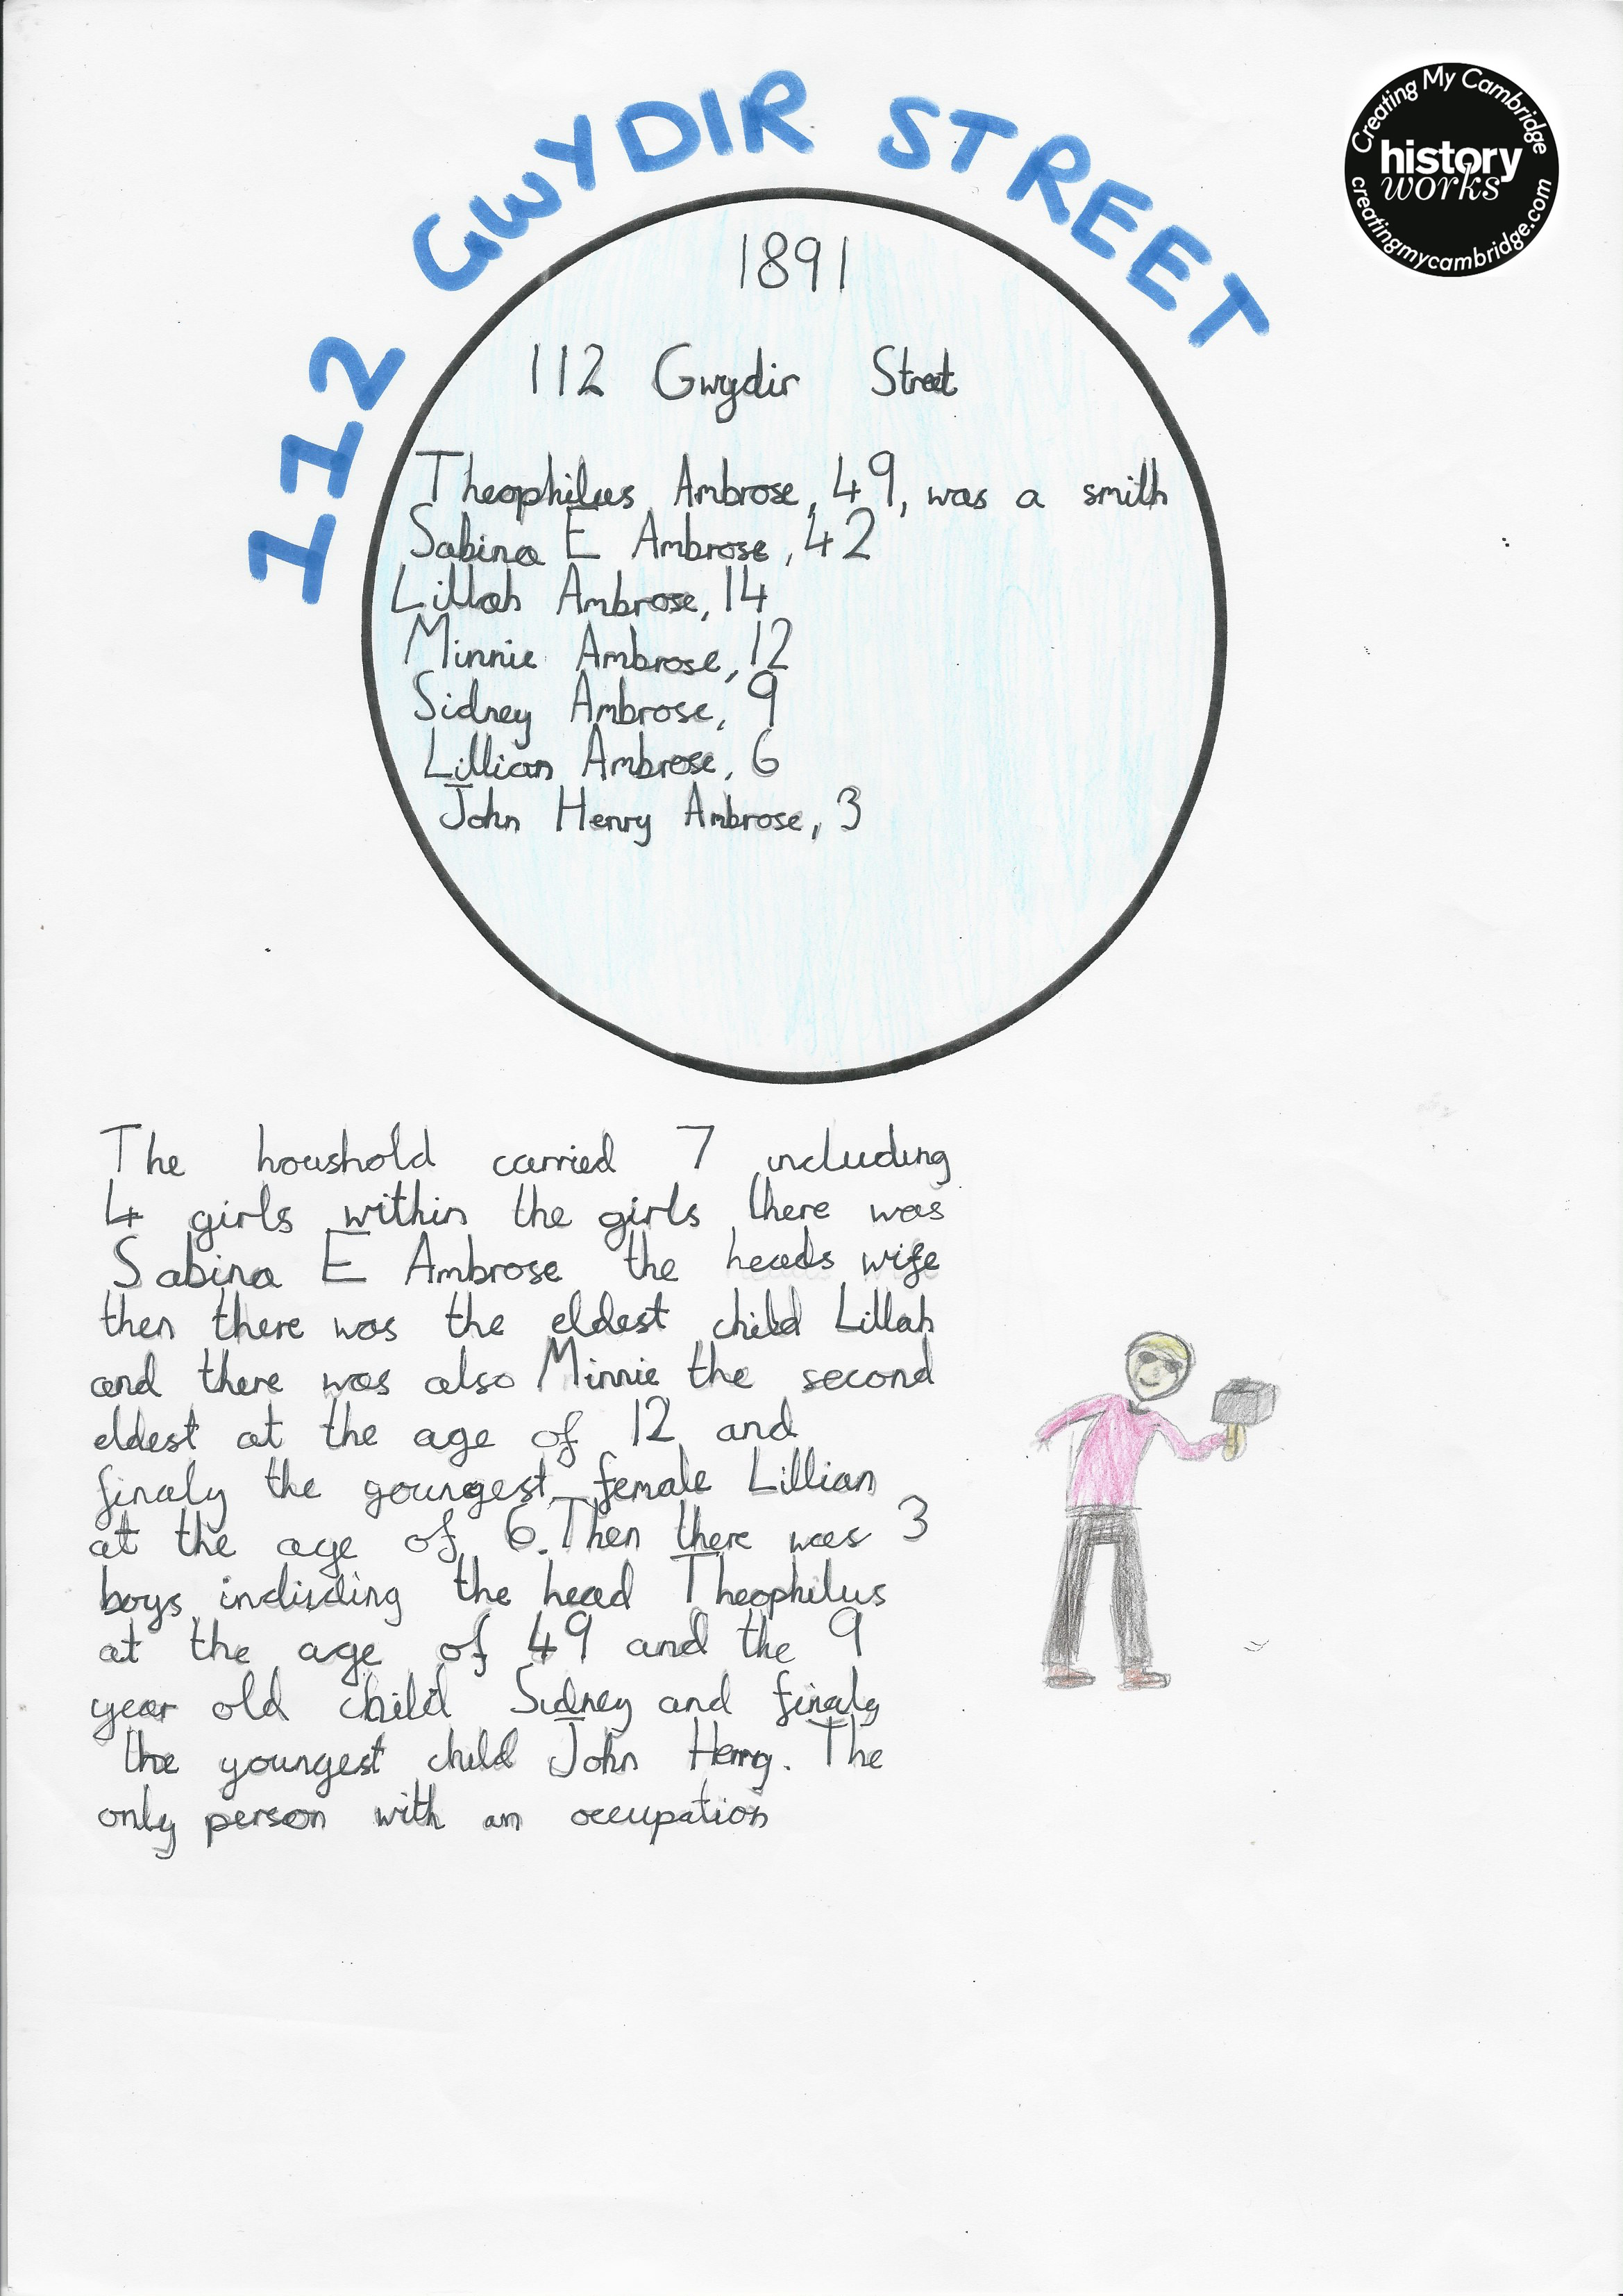 112 GWYDIR STREET
Creating My Cambridge
history
works
creatingmycambridge.com
1891
112 Gwydir Street
Theophilus Ambrose, 49, was a smith
Sabina E Ambrose, 42
Lillah Ambrose, 14
Minnie Ambrose, 12
Sidney Ambrose, 9
Lillian Ambrose, 6
John Henry Ambrose, 3
The houshold carried 7 including
4 girls within the girls there was
Sabina E Ambrose the heads wife
then there was the eldest child Lillah
and there was also Minnie the second
eldest at the age of 12 and
finaly the youngest female Lillian
at the age of 6. Then there was 3
boys including the head Theophilus
at the age of 49 and the 9
year old child Sidney and finaly
the youngest child John Henry. The
only person with an occupation